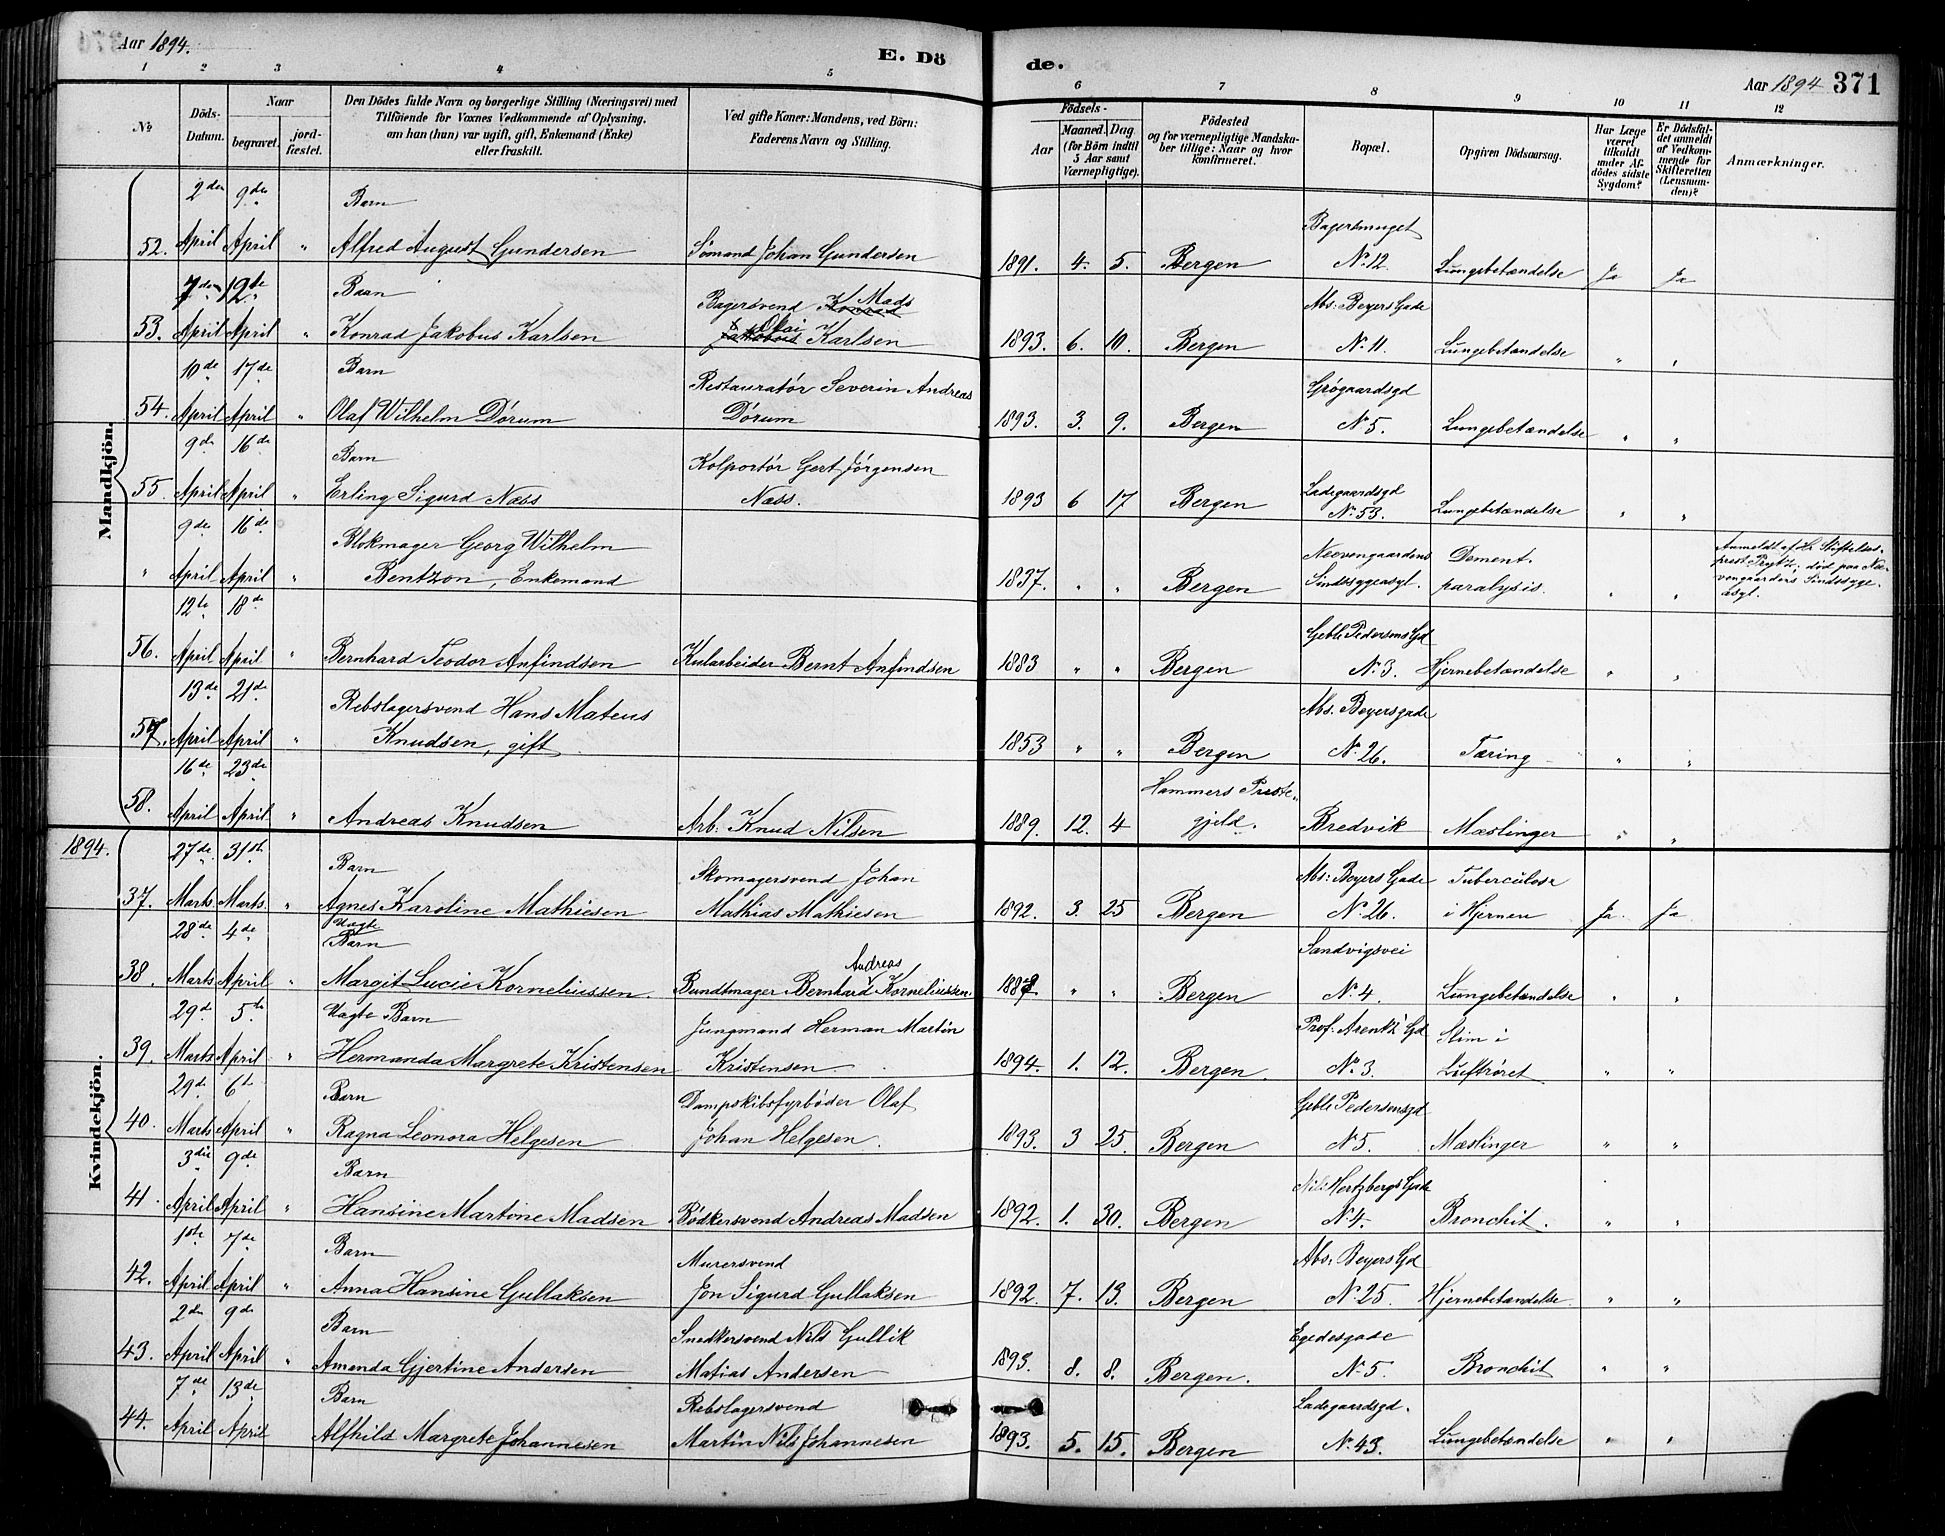 Aar 1894.
E. Dö
de.
Aar 1894
371
1 2 3 4 5 6 7 8 9 10 11 12
No
Döds-Datum.
Naar
begravet.
jord-fæstet.
Den Dödes fulde Navn og borgerlige Stilling (Næringsvei) med
Tilföiende for Voxnes Vedkommende af Oplysning,
om han (hun) var ugift, gift, Enkemand (Enke)
eller fraskilt.
Ved gifte Koner: Mandens, ved Börn:
Faderens Navn og Stilling.
Födsels-
Aar
Maaned. Dag.
(for Börn indtil
5 Aar samt
Værnepligtige).
Födested
og for værnepligtige Mandska-
ber tillige: Naar og hvor
konfirmeret.
Bopæl.
Opgiven Dödsaarsag.
Har Læge
været
tilkaldt
under Af-
dödes sidste
Sygdom?
Er Dödsfal-
det anmeldt
af Vedkom-
mende for
Skifteretten
(Lensman-
den)?
Anmærkninger.
Mandkjön.
2den 9de Barn Bagersmuget
52. April April " Alfred August Gundersen Sømand Johan Gundersen 1891. 4. 5. Bergen No 12. Lungebetændelse Ja Ja
7de 12te Barn Bagersvend Konrad Mads Abs: Beyers Gade
53. April April " Konrad Jakobus Karlsen Jakobus Olai Karlsen 1893. 6. 10. Bergen No 11. Lungebetændelse " "
10de 17de Barn Restauratør Severin Andreas Grøgaardsgd
54. April April " Olaf Wilhelm Dørum Dørum 1893. 3. 9. Bergen No 5. Lungebetændelse " "
9de 16de Barn Kolportør Gert Jørgensen Ladegaardsgd
55. April April " Erling Sigurd Næss Næss. 1893 6 17 Bergen No 53. Lungebetændelse " "
9de 16de Blokmager Georg Wilhelm Neevengaardens Dement. Anmeldt af Hr Stiftelses-
" April April " Bentzon, Enkemand 1837. " " Bergen Sindssygeasyl. paralysis. " " prest Prytz; død paa Nee-
vengaardens Sindssyge-
asyl.
12te 18de Geble Pedersens Gd
56. April April " Bernhard Teodor Anfindsen Kularbeider Bernt Anfindsen 1883 " " Bergen No 3. Hjernebetændelse " "
13de 21de Rebslagersvend Hans Mateus Abs. Beyersgade
57. April April " Knudsen, gift 1853 " " Bergen No 26. Tæring " "
16de 23de Hammers Preste-
58. April April " Andreas Knudsen Arb: Knud Nilsen 1889. 12. 4 gjeld. Bredvik Mæslinger " "
1894.
Kvindekjön.
27de 31st Barn Skomagersvend Johan Abs: Beyers Gade Tuberculose
37. Marts. Marts. " Agnes Karoline Mathiesen Mathias Mathiesen 1892. 3. 25 Bergen No 26. i Hjernen Ja. Ja
28de 4de Uægte Barn Andreas Sandvigsvei
38. Marts April " Margit Lucie Korneliussen. Bundtmager Bernhard Korneliussen. 1887 " " Bergen No 4. Lungebetændelse " "
29de 5te Uægte Barn Jungmand Herman Martin Prof: Arentz' Gd Slim i
39. Marts April " Hermanda Margrete Kristensen Kristensen 1894. 1. 12. Bergen. No 3. Luftrøret " "
29de 6te Barn Dampskibsfyrbøder Olaf Geble Pedersensgd
40. Marts April " Ragna Leonora Helgesen Johan Helgesen. 1893. 3 25. Bergen No 5. Mæslinger " "
3die 9de Barn Nils Hertzbergs Gade
41. April April " Hansine Martine Madsen Bødkersvend Andreas Madsen 1892. 1. 30. Bergen No 4. Bronchit. " "
1ste 7de Barn Murersvend Abs. Beyers Gd
42. April April " Anna Hansine Gullaksen Jon Sigurd Gullaksen 1892. 7. 13. Bergen No 25. Hjernebetændelse " "
2den 9de Barn Snedkersvend Nils Gullik Egedesgade
43. April April " Amanda Gjertine Andersen Matias Andersen 1893. 8. 8. Bergen. No 5 Bronchit " "
7de 13de Barn Rebslagersvend Ladegaardsgd.
44. April April " Alfhild Margrete Johannesen Martin Nils Johannesen 1893. 5. 15. Bergen No 43. Lungebetændelse " "